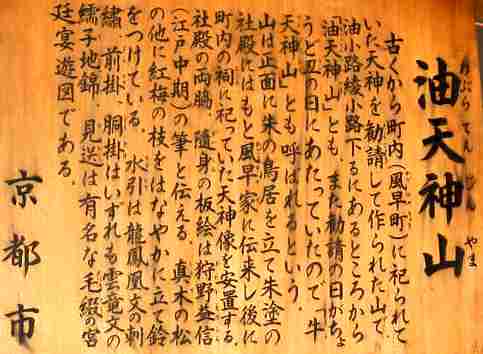 油天神山
あぶらてんじんやま
古くから町内(風早町)に祀られて
いた天神を勧請して作られた山で、
油小路綾小路下るにあるところから
「油天神山」とも、また勧請の日がちょ
うど丑の日にあたっていたので「牛
天神山」とも呼ばれるという。
山は正面に朱の鳥居を立て朱塗の
社殿にはもと風早家に伝来し後に
町内の祠に祀っていた天神像を安置する。
社殿の両脇、随身の板絵は狩野益信
(江戸中期)の筆と伝える。真木の松
の他に紅梅の枝をはなやかに立て鈴
をつけている。水引は龍鳳凰文の刺
繍、前掛、胴掛はいずれも雲竜文の
繻子地錦、見送は有名な毛綴の宮
廷宴遊図である。
京都市